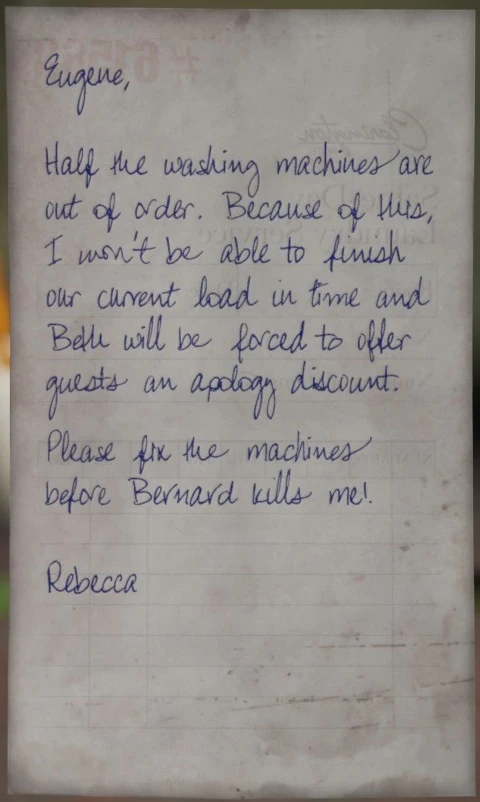 #6155
Eugene,
Clarington
Half the washing machines are
out of order. Because of this,
Same Day
I won't be able to finish
Laundry Service
our current load in time and
Beth will be forced to offer
guests an apology discount.
Please fix the machines
before Bernard kills me!
Rebecca